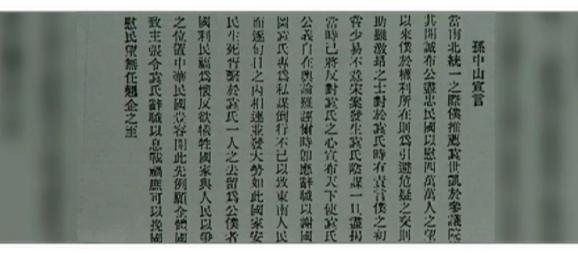 孫中山宣言
當南北統一之際僕推薦袁世凱於參議院
其開誠布公盡忠民國以慰四萬萬人之望
以來僕於權利所在則為引避危疑之交則
助雖激昂之士對於袁氏時有責言僕之初
嘗少易不意宋案發生袁氏陰謀一旦盡揭
當時已將反對袁氏之心宣布天下使袁氏
公義自在輿論難違爾時即應辭職以謝國
圖袁氏專為私謀倒行不已以致東南人民
而逐旬日之內相連並發大勢如此國家安
民生死胥繫於袁氏一人之去留為公僕者
國利民福為懷反欲犧牲國家與人民以爭
之位置中華民國豈容開此先例願全體國
致主張令袁氏辭職以息戰禍庶可以挽國
慰民望無任翹企之至